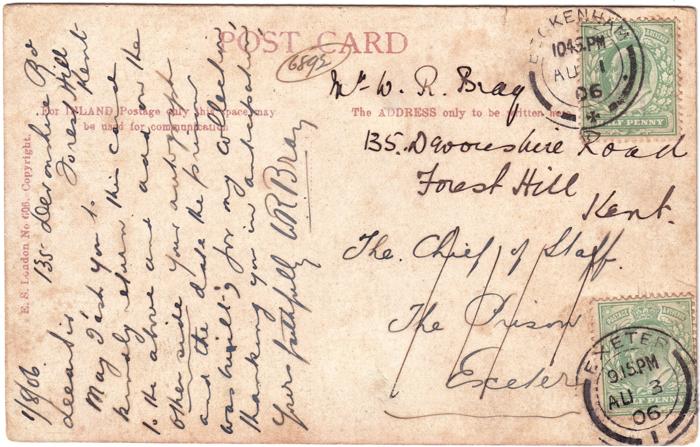 POST CARD
6895
For INLAND Postage only this space may
be used for communication
The ADDRESS only to be written he
E. S. London No 606. Copyright.
135 Devonshire Rd
Forest Hill
Kent
1/8/06
May I ask you to
kindly return this card
to the above and add on the
other side your autograph
and the date the prison
was built; for my collection
thanking you in anticipation
Yours faithfully WR Bray
Mr W. R. Bray
135. Devonshire Road
Forest Hill
Kent.
The Chief of Staff.
The Prison
Exeter
BECKENHAM
10.45.PM
AU 1
06
HALF PENNY
EXETER
9.15.PM
AU 3
06
HALF PENNY